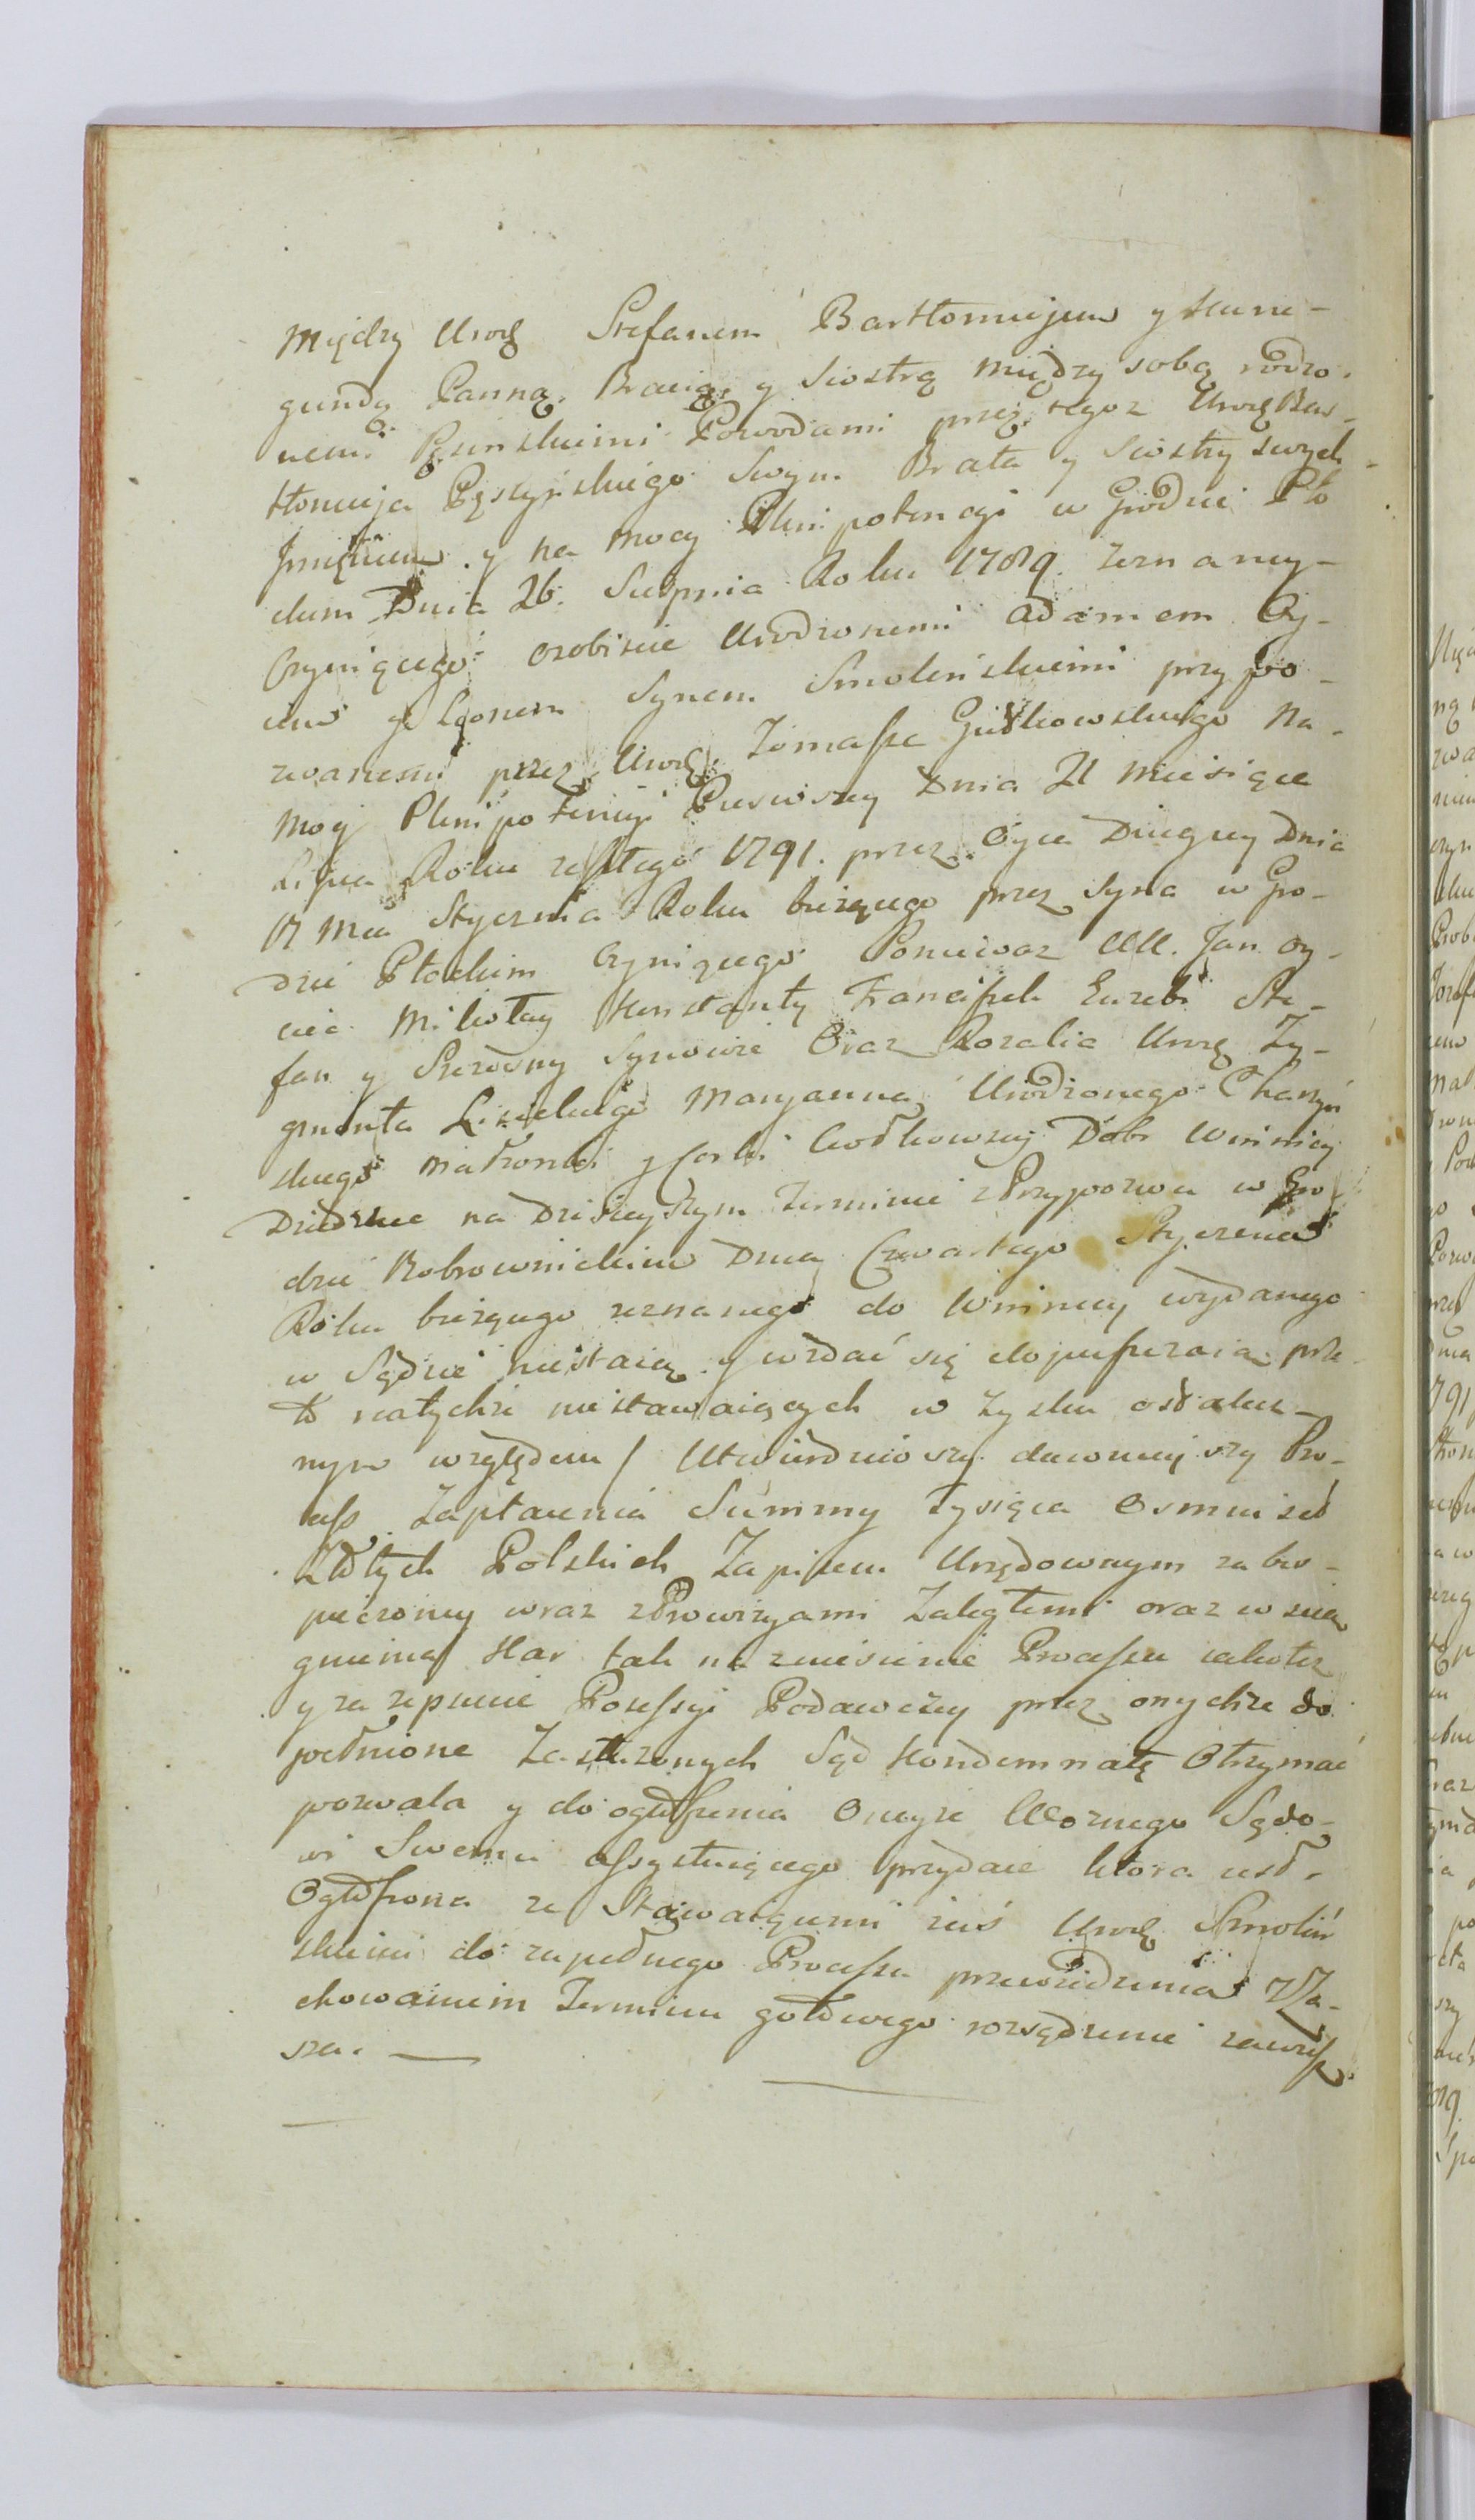 Między Urodz Stefanem Bartłomiejem y Kune-
gundą Panną, Bracią y Siostrą między sobą rodzo-
nemi Powodami przez tegoz Urodz Bar-
tłomieja Swym Brata y Siostry swych
Imieniem y na mocy Plenipotencyi w Grodzie Pło
ckim Dnia 26. Sierpnia Roku 1789. zeznaney
Czyniącego osobiscie Urodzonemi Adamem Oy-
cem y Leonem Synem Smolinskiemi przypo-
zwanemi przez Urodz Tomasza Gutkowskiego Na
Mocy Plenipotencyi Pierwszey Dnia 21 Miesiąca
Lipca Roku zeszłego 1791. przez Oyca Drugiey Dnia
17 Mca Stycznia Roku bieżącego przez Syna w Gro-
dzie Płockim Czyniącego Ponieważ UU. Jan Oy-
ciec Mikołay Konstanty Franciszek Euzebi Ste-
fan y Seweryny Synowie Oraz Rozalia Urodz Zy-
gmunta Maryanna Urodzonego
skiego małżonki y Corki Dobr Winnicy
Dziedzice na Dzisieyszym Terminie z Przypozwu w Gro
dzie Bobrownickim Dnia Czwartego Stycznia
Roku bieżącego zeznanego do Winnicy wydanego
w Sądzie niestaią y wzdać się dopuszczaią prze
to natychże niestawaiących w zysku ostatecz-
nym względem / Utwierdziwszy dawnieyszy Pro-
cess Zapłacenia Summy Tysiąca Osmiuset
Złotych Polskich Zapisem Urzędownym zabes-
pieczoney wraz z Prowizyami Zaległemi oraz w scią
gnienia Kar tak na zniesienie Processu iakotez
y za zepsucie Possessyi Podawczey przez onychże do
pełnione Sąd Kondemnatę Otrzymać
pozwala y do ogłoszenia Oneyże Woznego Sądo-
wi Swemu assystuiącego przydaie ktora iest
Ogłoszona ze Stawaiącemi zaś Urodz Smoliń
skiemi do zupełnego Processu przewiedzenia z Za-
chowaniem Terminu gotowego rozsądzenie zawiesz
sza. —